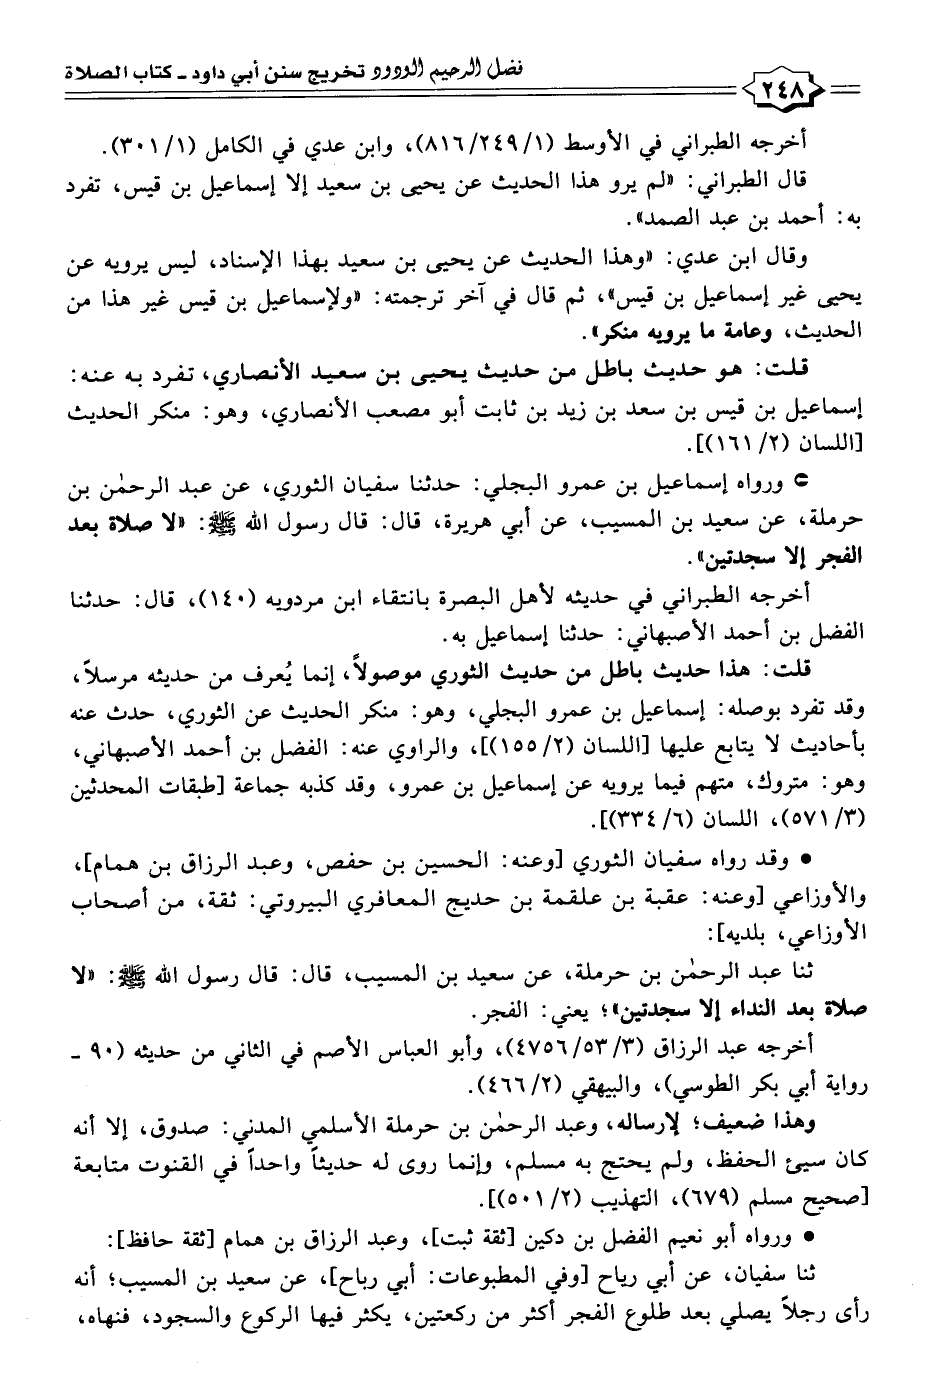 فضل الرحيم الودود تخريج سنن أبي داود ـ كتاب الصلاة
٢٤٨
أخرجه الطبراني في الأوسط (١/ ٢٤٩/ ٨١٦)، وابن عدي في الكامل (١/ ٣٠١).
قال الطبراني: «لم يرو هذا الحديث عن يحيى بن سعيد إلا إسماعيل بن قيس، تفرد
به: أحمد بن عبد الصمد».
وقال ابن عدي: «وهذا الحديث عن يحيى بن سعيد بهذا الإسناد، ليس يرويه عن
يحيى غير إسماعيل بن قيس»، ثم قال في آخر ترجمته: «ولإسماعيل بن قيس غير هذا من
الحديث، وعامة ما يرويه منكر».
قلت: هو حديث باطل من حديث يحيى بن سعيد الأنصاري، تفرد به عنه:
إسماعيل بن قيس بن سعد بن زيد بن ثابت أبو مصعب الأنصاري، وهو: منكر الحديث
[اللسان (٢/ ١٦١)].
ورواه إسماعيل بن عمرو البجلي: حدثنا سفيان الثوري، عن عبد الرحمٰن بن
حرملة، عن سعيد بن المسيب، عن أبي هريرة، قال: قال رسول الله ﷺ: «لا صلاة بعد
الفجر إلا سجدتين».
أخرجه الطبراني في حديثه لأهل البصرة بانتقاء ابن مردويه (١٤٠)، قال: حدثنا
الفضل بن أحمد الأصبهاني: حدثنا إسماعيل به.
قلت: هذا حديث باطل من حديث الثوري موصولاً، إنما يُعرف من حديثه مرسلاً،
وقد تفرد بوصله: إسماعيل بن عمرو البجلي، وهو: منكر الحديث عن الثوري، حدث عنه
بأحاديث لا يتابع عليها [اللسان (٢/ ١٥٥)]، والراوي عنه: الفضل بن أحمد الأصبهاني،
وهو: متروك، متهم فيما يرويه عن إسماعيل بن عمرو، وقد كذبه جماعة [طبقات المحدثين
(٣/ ٥٧١)، اللسان (٦/ ٣٣٤)].
• وقد رواه سفيان الثوري [وعنه: الحسين بن حفص، وعبد الرزاق بن همام]،
والأوزاعي [وعنه: عقبة بن علقمة بن حديج المعافري البيروتي: ثقة، من أصحاب
الأوزاعي، بلديه]:
ثنا عبد الرحمٰن بن حرملة، عن سعيد بن المسيب، قال: قال رسول الله ﷺ: «لا
صلاة بعد النداء إلا سجدتين»؛ يعني: الفجر.
أخرجه عبد الرزاق (٣/ ٥٣/ ٤٧٥٦)، وأبو العباس الأصم في الثاني من حديثه (٩٠ ـ
رواية أبي بكر الطوسي)، والبيهقي (٢/ ٤٦٦).
وهذا ضعيف؛ لإرساله، وعبد الرحمٰن بن حرملة الأسلمي المدني: صدوق، إلا أنه
كان سيئ الحفظ، ولم يحتج به مسلم، وإنما روى له حديثاً واحداً في القنوت متابعة
[صحيح مسلم (٦٧٩)، التهذيب (٢/ ٥٠١)].
• ورواه أبو نعيم الفضل بن دكين [ثقة ثبت]، وعبد الرزاق بن همام [ثقة حافظ]:
ثنا سفيان، عن أبي رياح [وفي المطبوعات: أبي رباح]، عن سعيد بن المسيب؛ أنه
رأى رجلاً يصلي بعد طلوع الفجر أكثر من ركعتين، يكثر فيها الركوع والسجود، فنهاه،